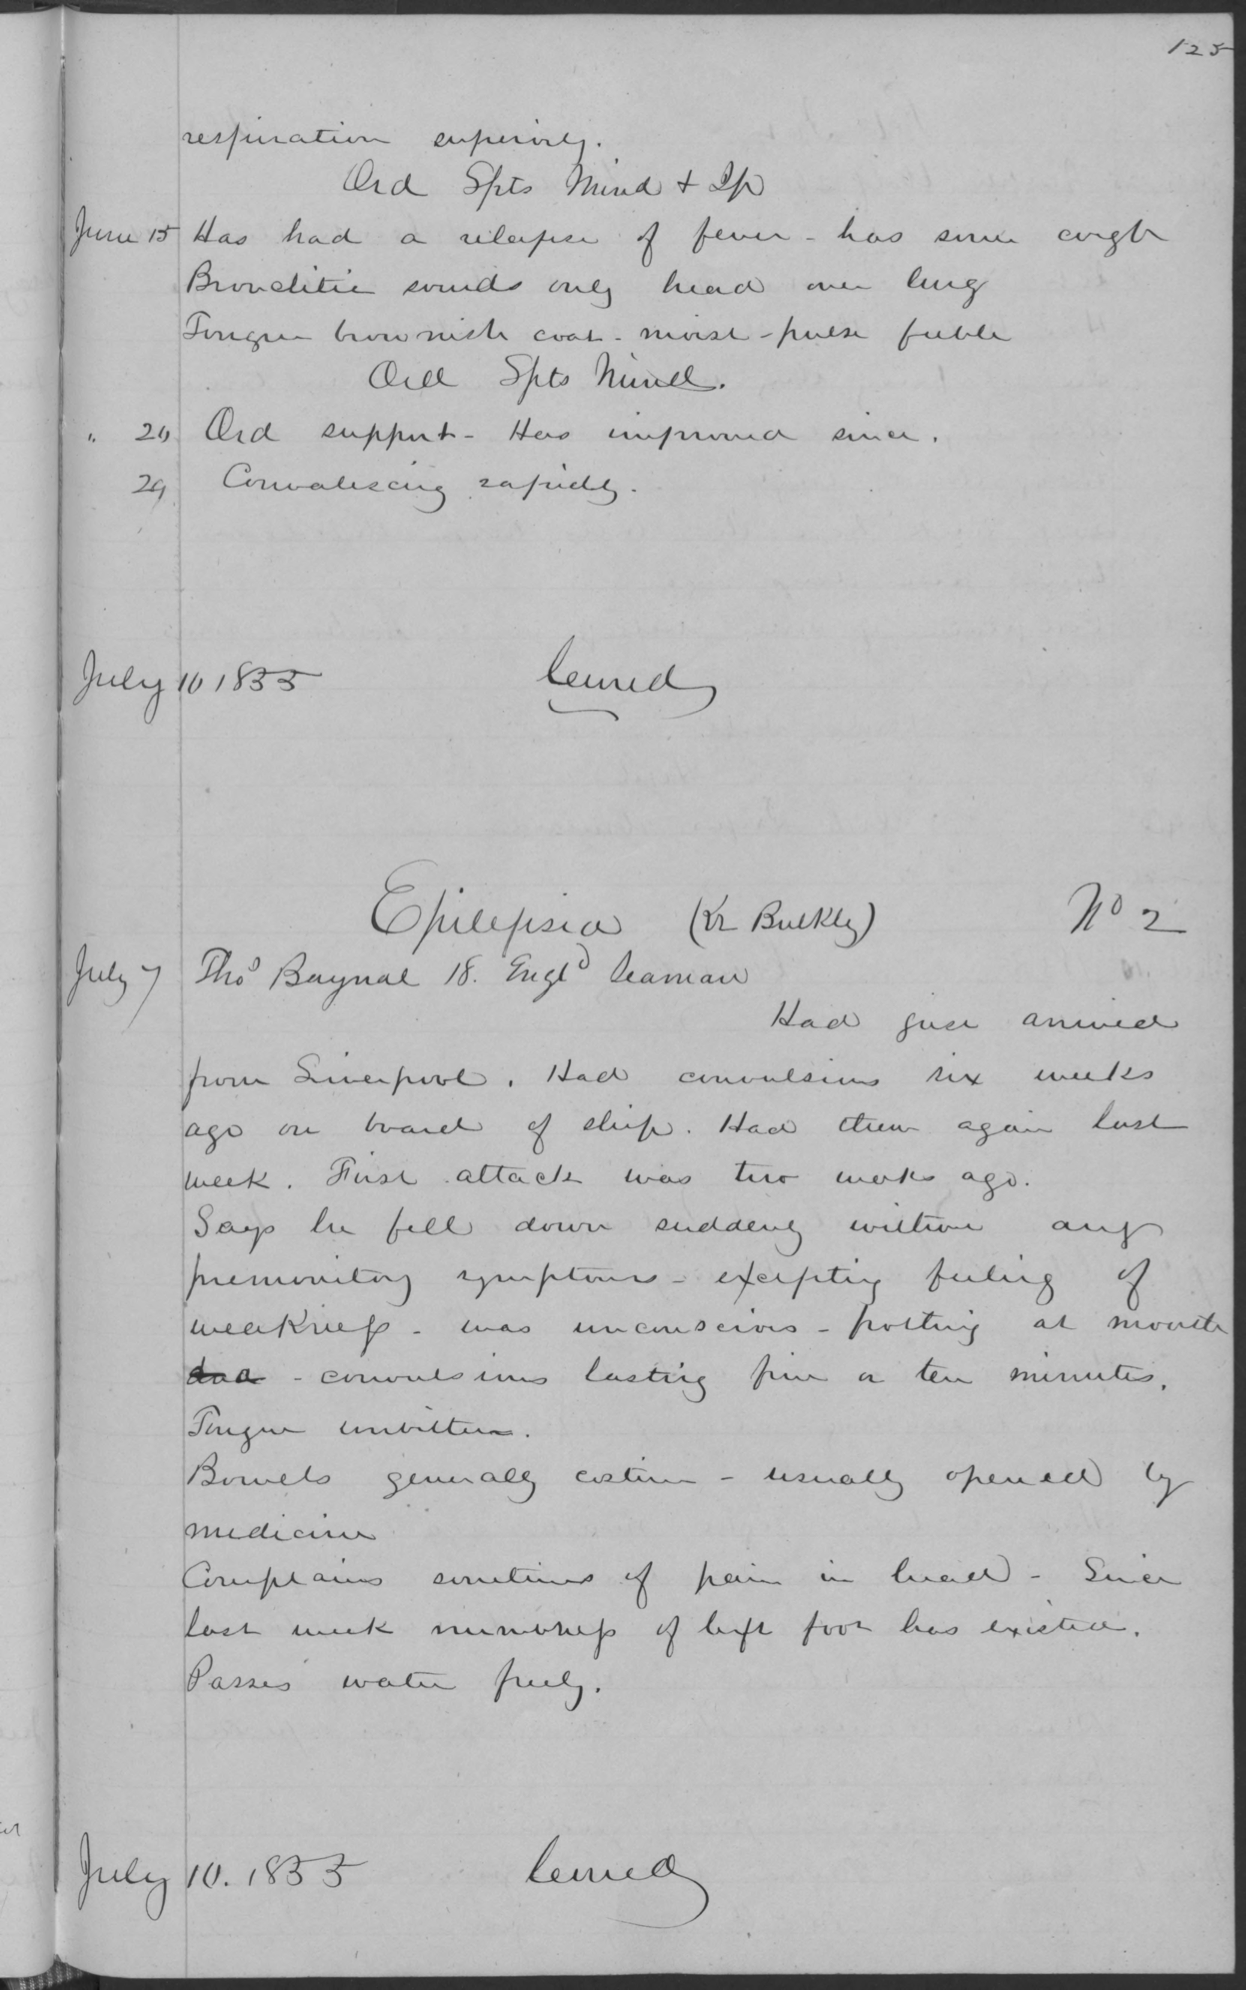 125
respiration superiorly.
Ord Spts Mind + Ip
June 15 Has had a relapse of fever - has some cough
Bronchitic sounds only head over lung
Tongue brownish coat - moist - pulse feeble
Ord Spts Mind.
" 20 Ord support - Has improved since.
29 Convalescing rapidly.
July 10 1855 Cured
Epilepsia (Dr Bulkly) No 2
July 7 Thos Baynal 18. Engld Seaman
Had just arrived
from Liverpool. Had convulsions six weeks
ago on board of ship. Had them again last
week. First attack was two weeks ago.
Says he fell down suddenly without any
premonitory symptoms - excepting feeling of
weakness - was unconscious - frothing at mouth
- convulsions lasting five or ten minutes.
Tongue unbitten.
Bowels generally costive - usually opened by
medicine
Complains sometimes of pain in head - Since
last week numbness of left foot has existed.
Passes water freely.
July 10. 1855 Cured